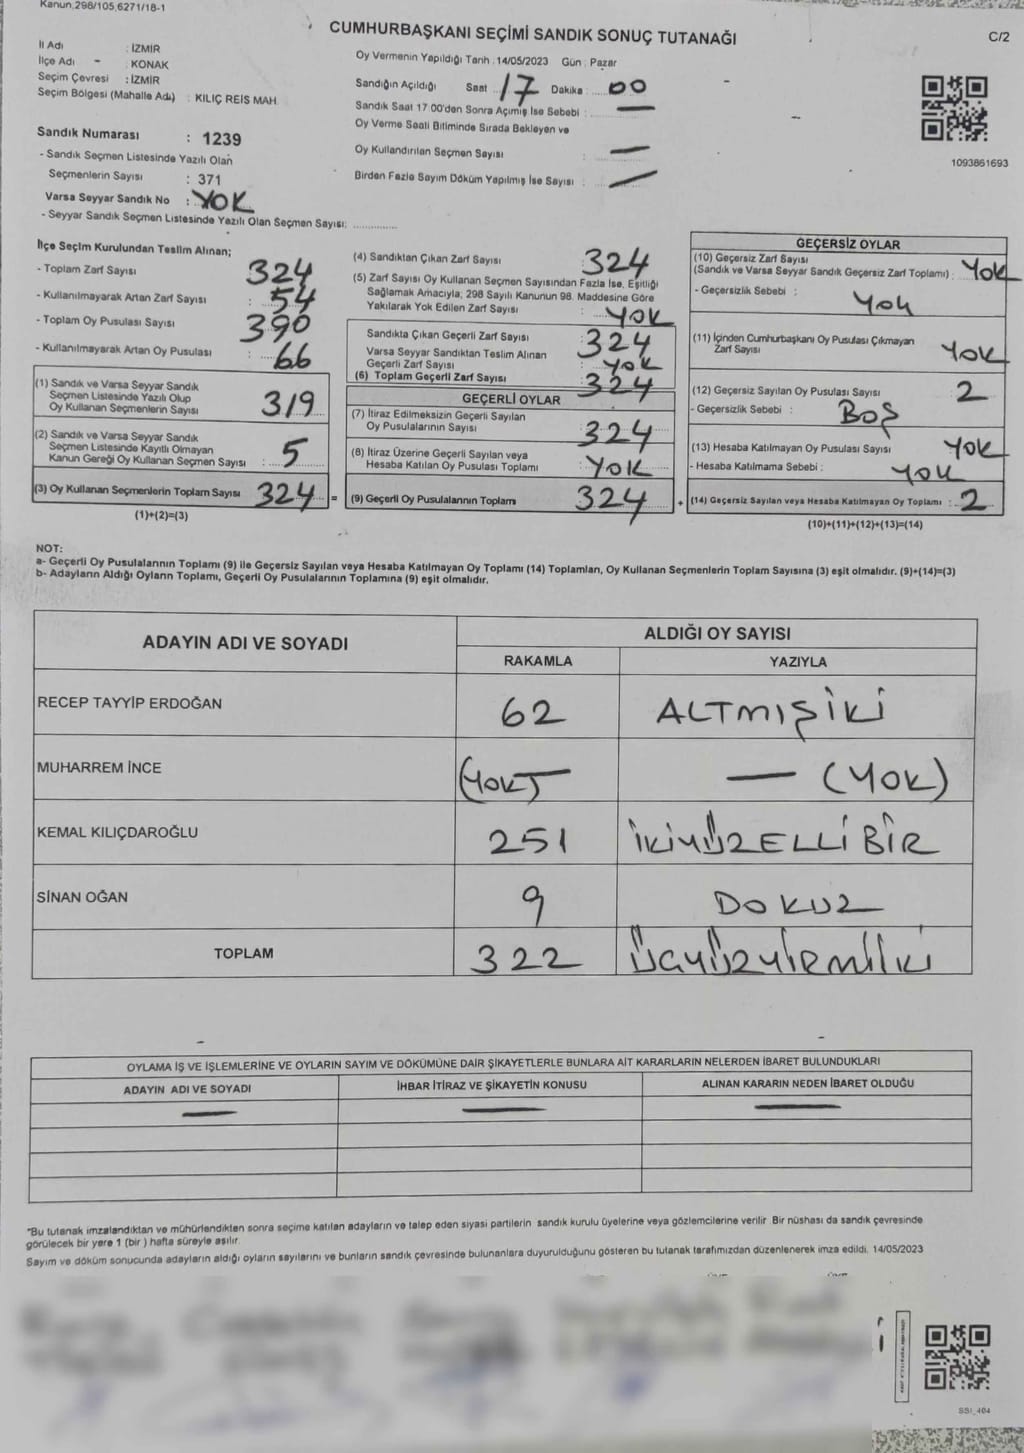 Kanun,298/105,6271/18-1
CUMHURBAŞKANI SEÇİMİ SANDIK SONUÇ TUTANAĞI
C/2
İl Adı : İZMİR
İlçe Adı : KONAK
Seçim Çevresi : İZMİR
Seçim Bölgesi (Mahalle Adı) : KILIÇ REİS MAH.
Oy Vermenin Yapıldığı Tarih : 14/05/2023 Gün : Pazar
Sandığın Açıldığı Saat : 17 Dakika : 00
Sandık Saat 17:00'den Sonra Açımış İse Sebebi : —
Oy Verme Saati Bitiminde Sırada Bekleyen ve
Oy Kullandırılan Seçmen Sayısı : —
Birden Fazla Sayım Döküm Yapılmış İse Sayısı : —
1093861693
Sandık Numarası : 1239
- Sandık Seçmen Listesinde Yazılı Olan
Seçmenlerin Sayısı : 371
Varsa Seyyar Sandık No : YOK
- Seyyar Sandık Seçmen Listesinde Yazılı Olan Seçmen Sayısı: ..............
İlçe Seçim Kurulundan Teslim Alınan;
- Toplam Zarf Sayısı : 324
- Kullanılmayarak Artan Zarf Sayısı : 54
- Toplam Oy Pusulası Sayısı : 390
- Kullanılmayarak Artan Oy Pusulası : 66
(1) Sandık ve Varsa Seyyar Sandık
Seçmen Listesinde Yazılı Olup
Oy Kullanan Seçmenlerin Sayısı 319
(2) Sandık ve Varsa Seyyar Sandık
Seçmen Listesinde Kayıtlı Olmayan
Kanun Gereği Oy Kullanan Seçmen Sayısı : 5
(3) Oy Kullanan Seçmenlerin Toplam Sayısı 324 =
(1)+(2)=(3)
(4) Sandıktan Çıkan Zarf Sayısı : 324
(5) Zarf Sayısı Oy Kullanan Seçmen Sayısından Fazla İse, Eşitliği
Sağlamak Amacıyla, 298 Sayılı Kanunun 98. Maddesine Göre
Yakılarak Yok Edilen Zarf Sayısı : YOK
Sandıkta Çıkan Geçerli Zarf Sayısı : 324
Varsa Seyyar Sandıktan Teslim Alınan
Geçerli Zarf Sayısı : YOK
(6) Toplam Geçerli Zarf Sayısı : 324
GEÇERLİ OYLAR
(7) İtiraz Edilmeksizin Geçerli Sayılan
Oy Pusulalarının Sayısı : 324
(8) İtiraz Üzerine Geçerli Sayılan veya
Hesaba Katılan Oy Pusulası Toplamı : YOK
(9) Geçerli Oy Pusulalarının Toplam 324 +
GEÇERSİZ OYLAR
(10) Geçersiz Zarf Sayısı
(Sandık ve Varsa Seyyar Sandık Geçersiz Zarf Toplamı) : YOK
- Geçersizlik Sebebi : YOK
(11) İçinden Cumhurbaşkanı Oy Pusulası Çıkmayan
Zarf Sayısı YOK
(12) Geçersiz Sayılan Oy Pusulası Sayısı : 2
- Geçersizlik Sebebi : BOŞ
(13) Hesaba Katılmayan Oy Pusulası Sayısı : YOK
- Hesaba Katılmama Sebebi : YOK
(14) Geçersiz Sayılan veya Hesaba Katılmayan Oy Toplamı : 2
(10)+(11)+(12)+(13)=(14)
NOT:
a- Geçerli Oy Pusulalarının Toplamı (9) ile Geçersiz Sayılan veya Hesaba Katılmayan Oy Toplamı (14) Toplamları, Oy Kullanan Seçmenlerin Toplam Sayısına (3) eşit olmalıdır. (9)+(14)=(3)
b- Adayların Aldığı Oyların Toplamı, Geçerli Oy Pusulalarının Toplamına (9) eşit olmalıdır.
ADAYIN ADI VE SOYADI
ALDIĞI OY SAYISI
RAKAMLA YAZIYLA
RECEP TAYYİP ERDOĞAN 62 ALTMIŞİKİ
MUHARREM İNCE (YOK) — — (YOK)
KEMAL KILIÇDAROĞLU 251 İKİYÜZELLİBİR
SİNAN OĞAN 9 DOKUZ
TOPLAM 322 ÜÇYÜZYİRMİİKİ
OYLAMA İŞ VE İŞLEMLERİNE VE OYLARIN SAYIM VE DÖKÜMÜNE DAİR ŞİKAYETLERLE BUNLARA AİT KARARLARIN NELERDEN İBARET BULUNDUKLARI
ADAYIN ADI VE SOYADI İHBAR İTİRAZ VE ŞİKAYETİN KONUSU ALINAN KARARIN NEDEN İBARET OLDUĞU
— — —
*Bu tutanak imzalandıktan ve mühürlendikten sonra seçime katılan adayların ve talep eden siyasi partilerin sandık kurulu üyelerine veya gözlemcilerine verilir. Bir nüshası da sandık çevresinde
görülecek bir yere 1 (bir ) hafta süreyle asılır.
Sayım ve döküm sonucunda adayların aldığı oyların sayılarını ve bunların sandık çevresinde bulunanlara duyurulduğunu gösteren bu tutanak tarafımızdan düzenlenerek imza edildi. 14/05/2023
SSİ_404